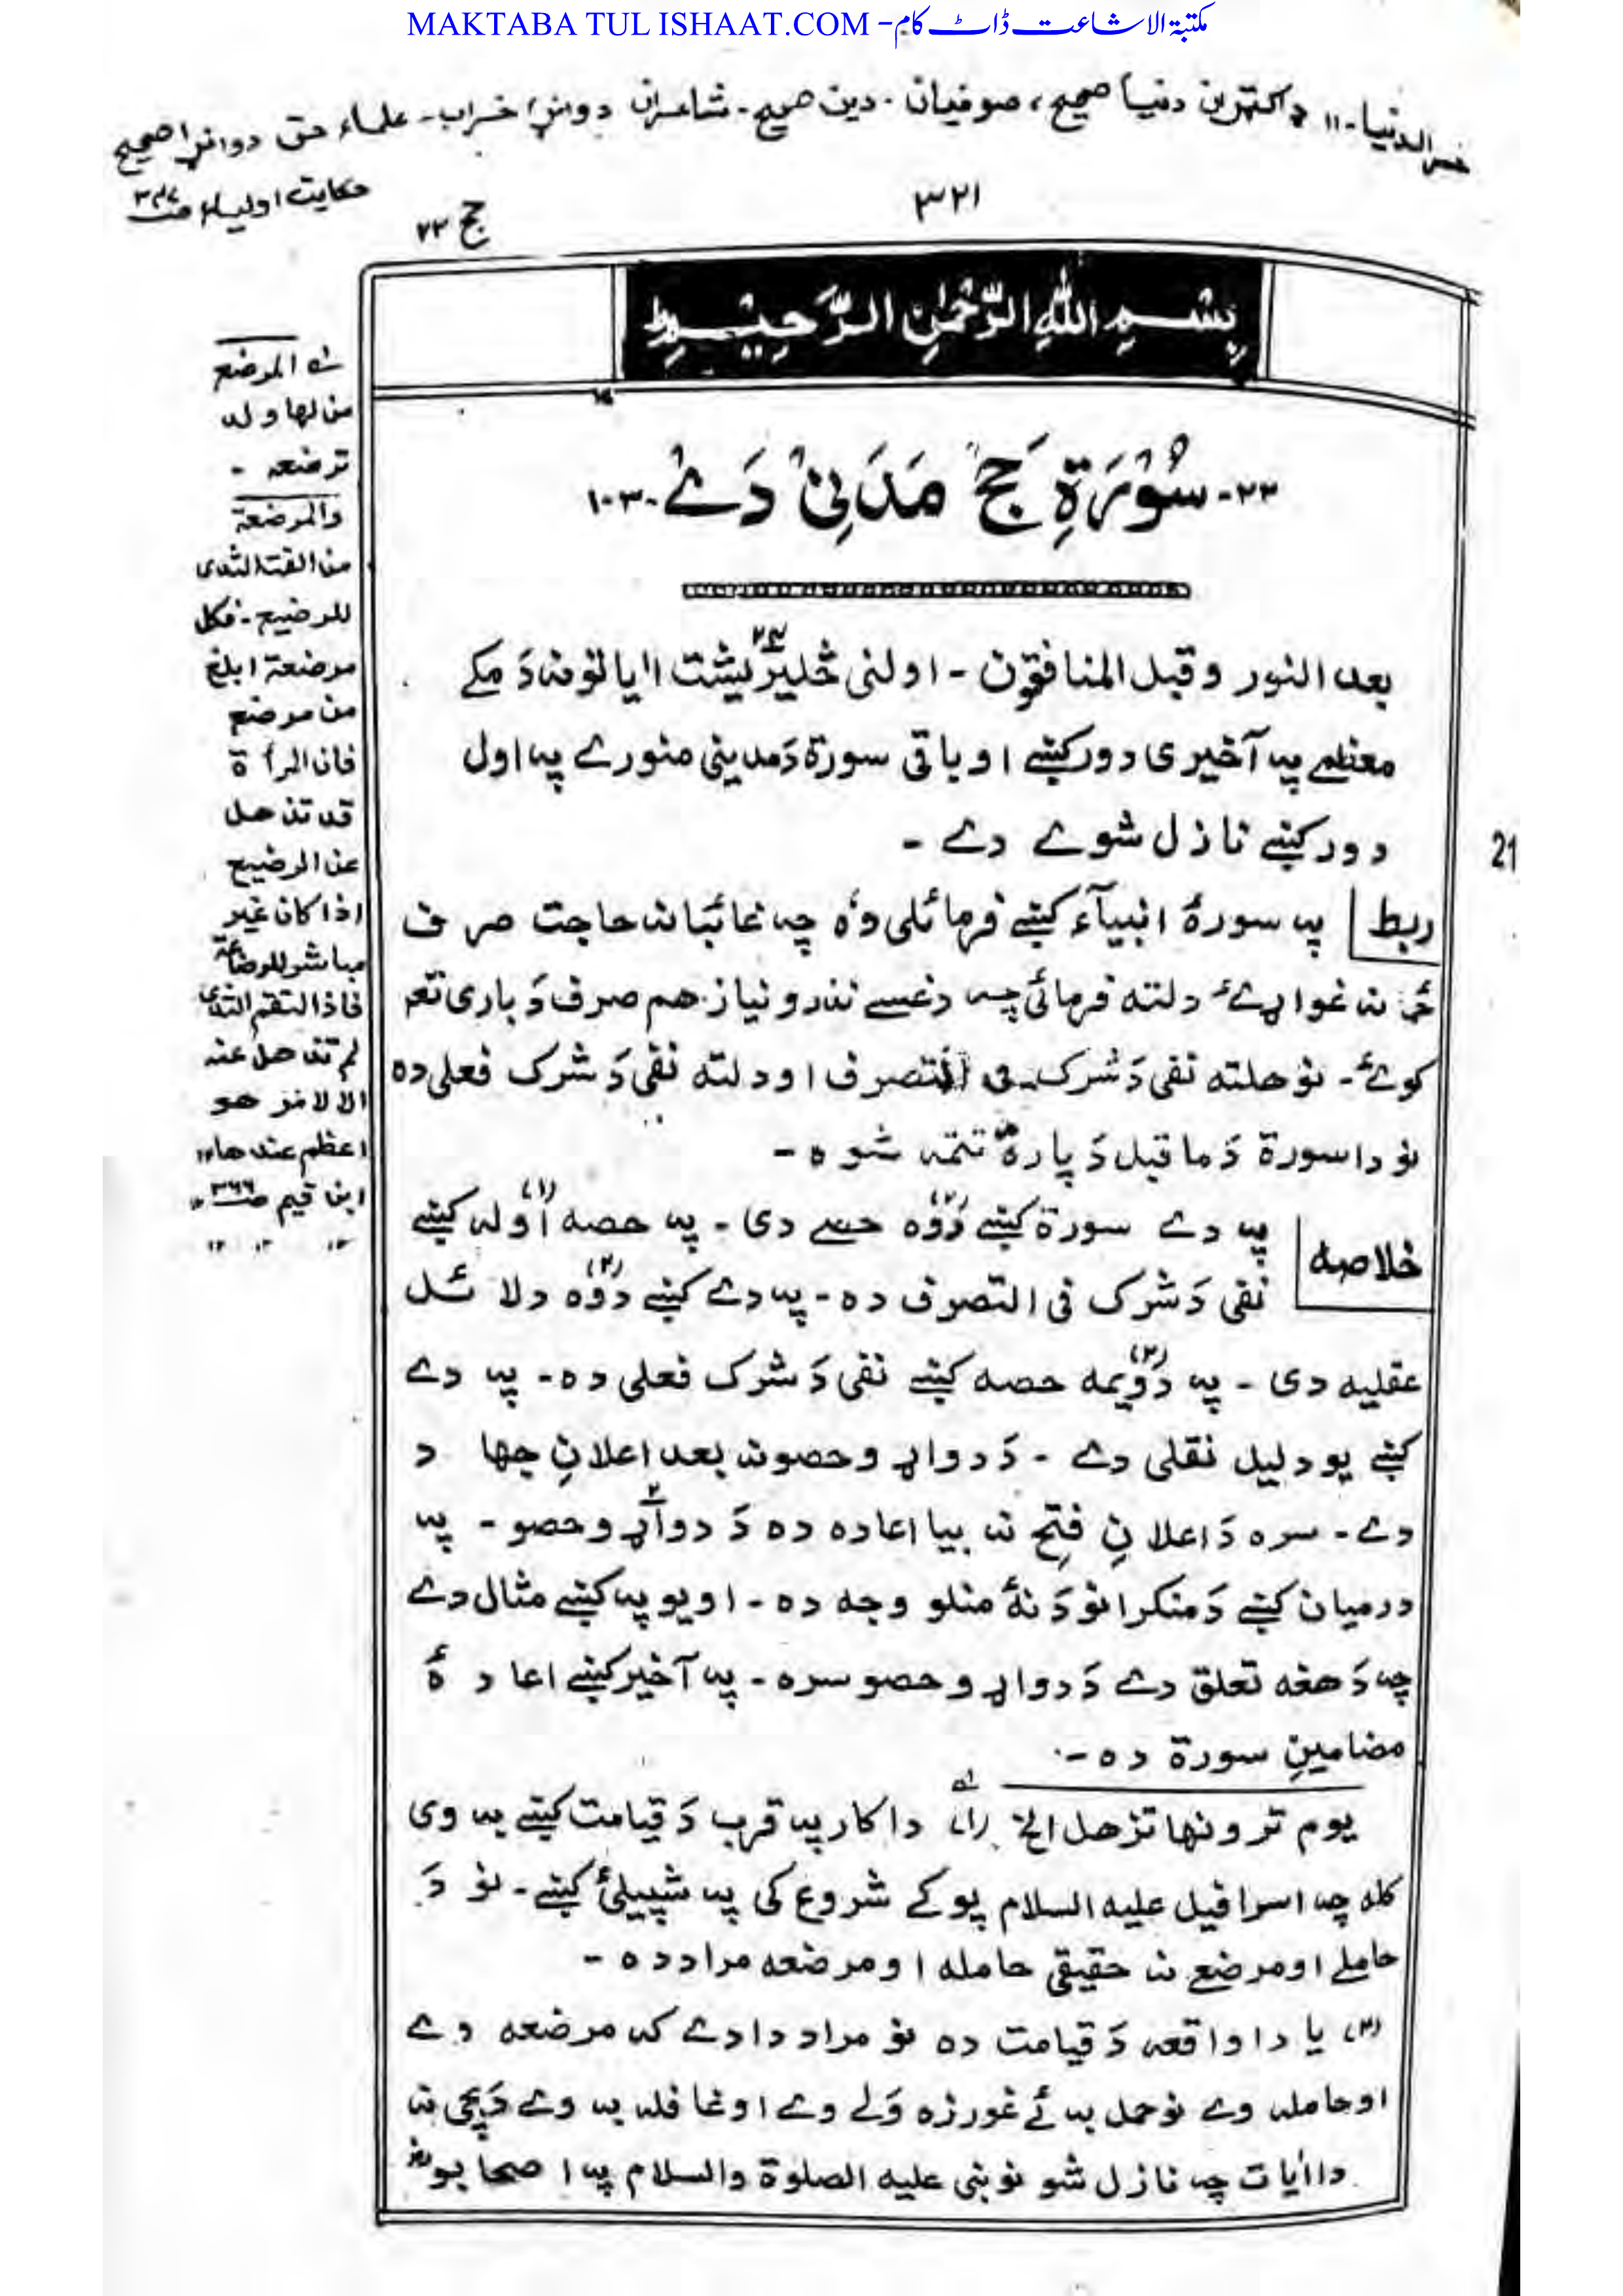 MAKTABA TUL ISHAAT.COM - مکتبۃ الاشاعت ڈاٹ کام
خسر الدنیا - ۱۱ ډاکټران دنیا صحیح، صوفیان - دین صحیح - شاعران دواړا خراب - علماء حق دواړا صحیح
حکایت اولیاء
۳۲۱
حج ۲۲
بِسْمِ اللهِ الرَّحْمٰنِ الرَّحِيْمِ
۲۲- سُوْرَةِ حَجْ مَدَنِیْ دَےْ -۱۰۳
بعد النور وقبل المنافقون - اولنی څلیریشت اٰیاتونه دَ مکے
معظمے پہ آخیری دور کښے او باقی سورة دَ مدینی منورے پہ اول
دور کښے نازل شوے دے -
ربط
پہ سورۂ انبیآء کښے فرمائلی وۂ چہ غائبانہ حاجت صرف
نہ غواړیٔ دلته فرمائی چہ دغسے نذر و نیاز هم صرف دَ باری تعٰہ
کویٔ - نو هلته نفی دَ شرک فی التصرف او دلته نفی دَ شرک فعلی ده
نو دا سورة دَ ماقبل دَ پارہ تتمہ شوہ -
خلاصہ
پہ دے سورة کښے دَوٗہ حصے دی - پہ حصہ اَولہ کښے
نفی دَ شرک فی التصرف دہ - پہ دے کښے دَوٗہ دلائل
عقلیه دی - پہ دَویمہ حصہ کښے نفی دَ شرک فعلی دہ - پہ دے
کښے یو دلیل نقلی دے - دَ دواړو حصو نہ بعد اعلانِ جهاد
دے - سرہ دَ اعلانِ فتح نہ بیا اعادہ دہ دَ دواړو حصو - پہ
درمیان کښے دَ منکرانو دَ نۂ منلو وجہ دہ - او یو پہ کښے مثال دے
چہ دَ هغه تعلق دے دَ دواړو حصو سرہ - پہ آخیر کښے اعادۂ
مضامینِ سورة دہ -
یوم ترونها تذهل الخ (۱) دا کار پہ قرب دَ قیامت کښے بہ وی
کله چہ اسرافیل علیه السلام پوکے شروع کی پہ شپیلیٔ کښے - نو دَ
حاملے او مرضعے نہ حقیقی حامله او مرضعه مراد دہ -
(۲) یا دا واقعہ دَ قیامت دہ نو مراد دا دے کہ مرضعه وے
او حاملہ وے نو حمل بہ ئے غورزہ وَلے وے او غافلہ بہ وے دَ بچی نہ
دا اٰیات چہ نازل شو نو نبی علیه الصلوة والسلام پہ اصحابو
المرضع
من لها ولد
ترضعه -
والمرضعة
من القت الثدی
للرضیع - فکل
مرضعة ابلغ
من مرضع
فان المرأة
قد تذهل
عن الرضیع
اذا کان غیر
مباشر للرضاعة
فاذا التقم الثدی
لم تذهل عنه
الا لامر هو
اعظم عندها ۱۱
ابن قیم ص ۳۶۶
21